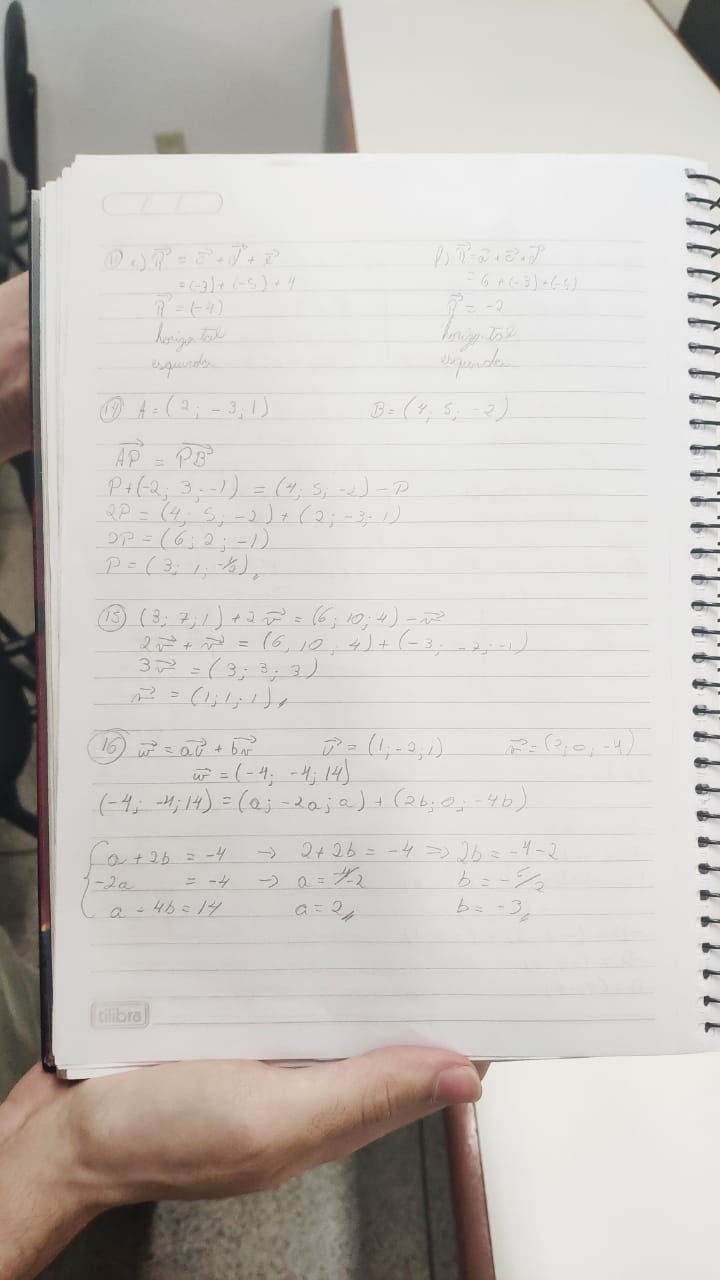 11 e) R = c + d + e
= (-3) + (-5) + 4
R = (-4)
horizontal
esquerda
f) R = a + c + d
= 6 + (-3) + (-5)
R = -2
horizontal
esquerda
14 A = (2; -3; 1) B = (4; 5; -2)
AP = PB
P + (-2; 3; -1) = (4; 5; -2) - P
2P = (4; 5; -2) + (2; -3; 1)
2P = (6; 2; -1)
P = (3; 1; -1/2)
15 (3; 7; 1) + 2v = (6; 10; 4) - v
2v + v = (6, 10; 4) + (-3; -7; -1)
3v = (3; 3; 3)
v = (1; 1; 1)
16 w = au + bv u = (1; -2; 1) v = (2; 0; -4)
w = (-4; -4; 14)
(-4; -4; 14) = (a; -2a; a) + (2b; 0; -4b)
a + 2b = -4 → 2 + 2b = -4 ⇒ 2b = -4 - 2
-2a = -4 → a = -4/-2 b = -6/2
a - 4b = 14 a = 2 b = -3
tilibra